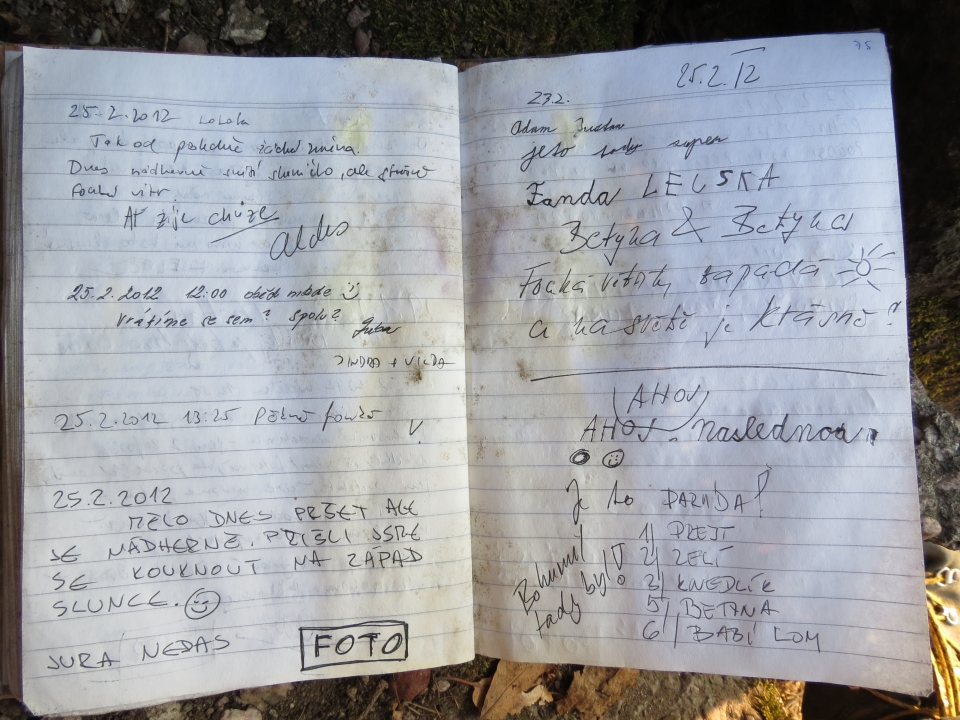 25.2.2012
Tak od poledně žádná změna.
Dnes nádherně svítí sluníčko, ale strašně
fouká vítr
Ať žije chůze
aldo
25.2.2012 12:00 oběd
Vrátíme se sem? spolu?
JINDRA + VILDA
25.2.2012 13:25 Pěkně fouká
V.
25.2.2012
MĚLO DNES PRŠET ALE
JE NÁDHERNĚ. PŘIŠLI JSME
SE KOUKNOUT NA ZÁPAD
SLUNCE.
JURA NEDAS
FOTO
35
25.2.12
23.2.
Adam
je to tady super
Fanda LELSKA
Betyna & Betyna
Fouká větřík, zapadá
a na světě je krásně?
AHOJ
AHOJ. naslednou.
Je to PARÁDA!
Bohumil
tady byl!
1) PREJT
2) ZELÍ
3) KNEDLÍK
5) BETANA
6) BABÍ LOM